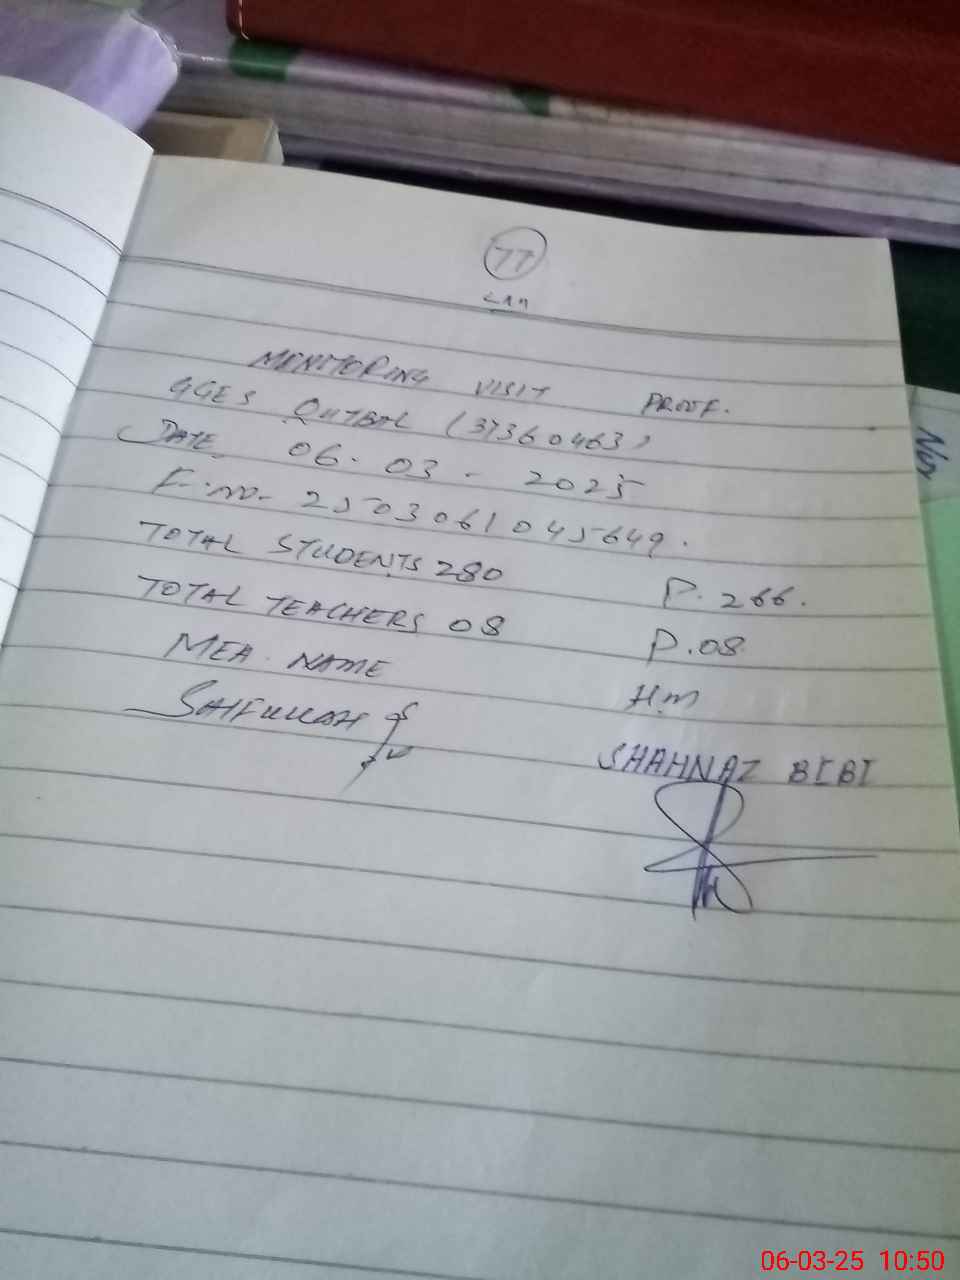 77
MONITORING VISIT PROOF.
GGES QUTBAL (37360463)
DATE. 06-03-2025
F.no- 2503061045649.
TOTAL STUDENTS 280 P.266.
TOTAL TEACHERS 08 P.08
MEA NAME H.M
SAIFULLAH
SHAHNAZ BIBI
06-03-25 10:50